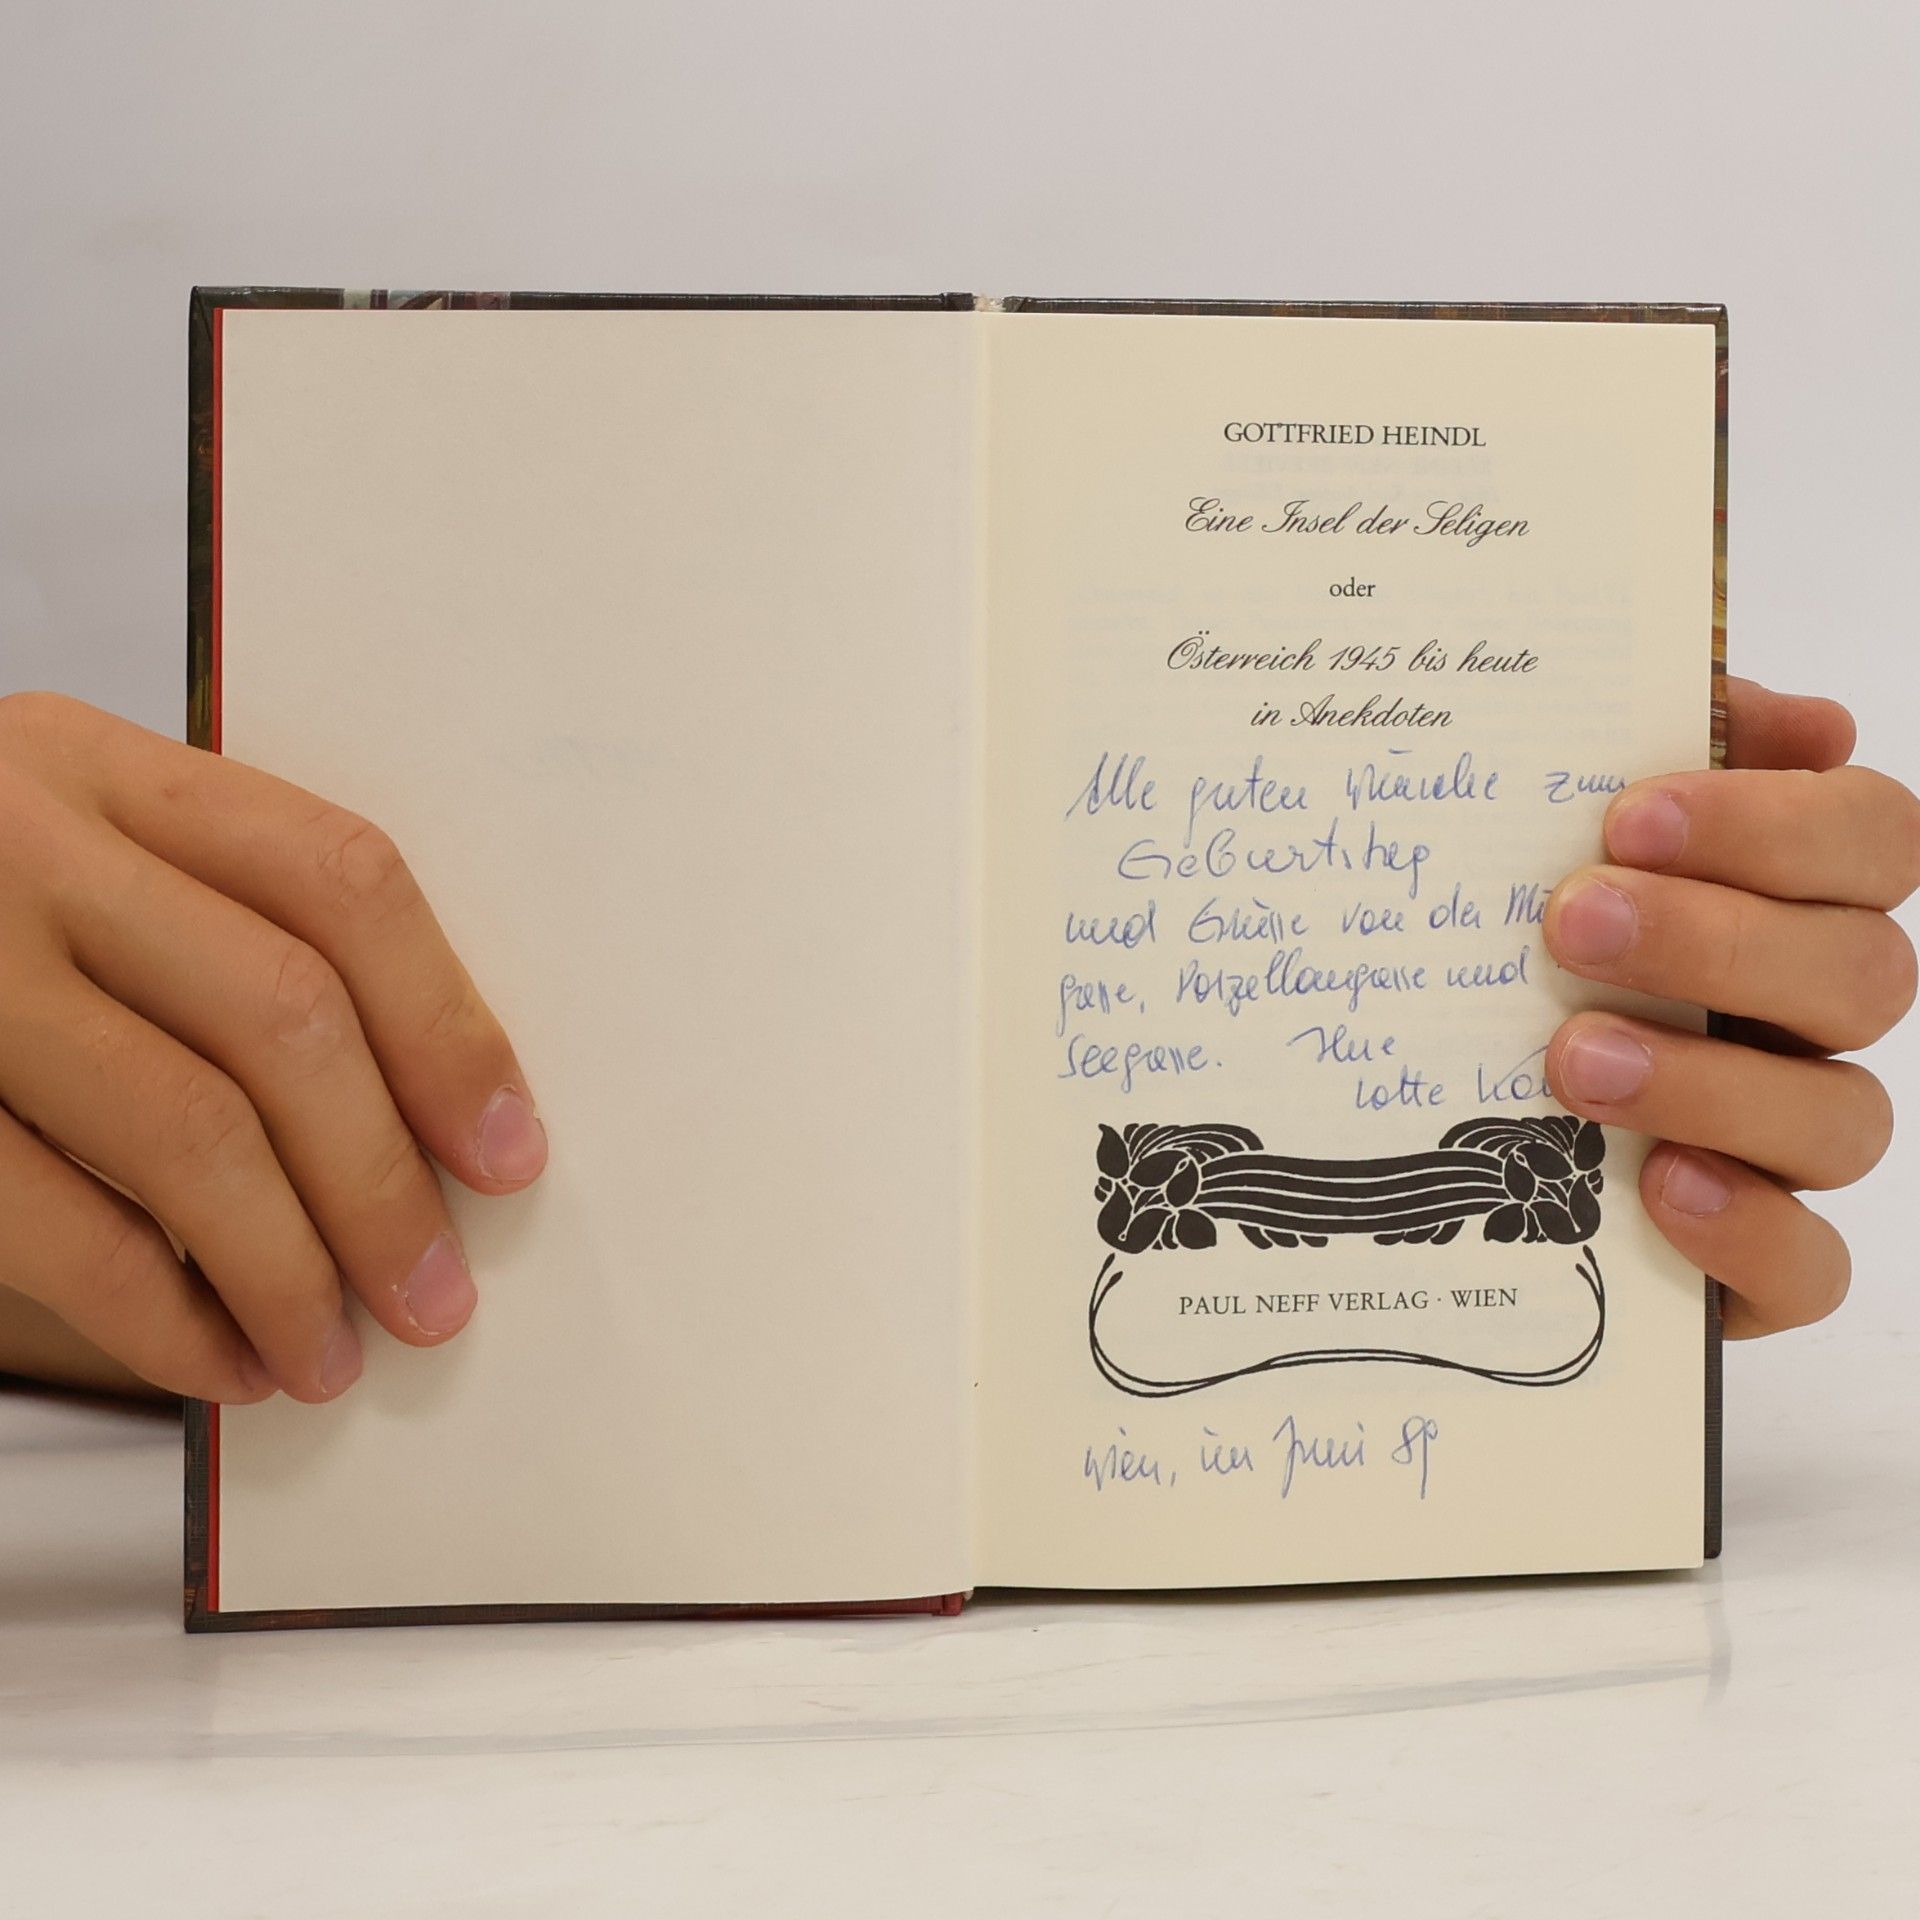 GOTTFRIED HEINDL
Eine Insel der Seligen
oder
Österreich 1945 bis heute
in Anekdoten
Alle guten Wünsche zum
Geburtstag
und Grüße von der
gasse, Porzellangasse und
Seegasse. Ihre
Lotte
PAUL NEFF VERLAG · WIEN
Wien, im Juni 89